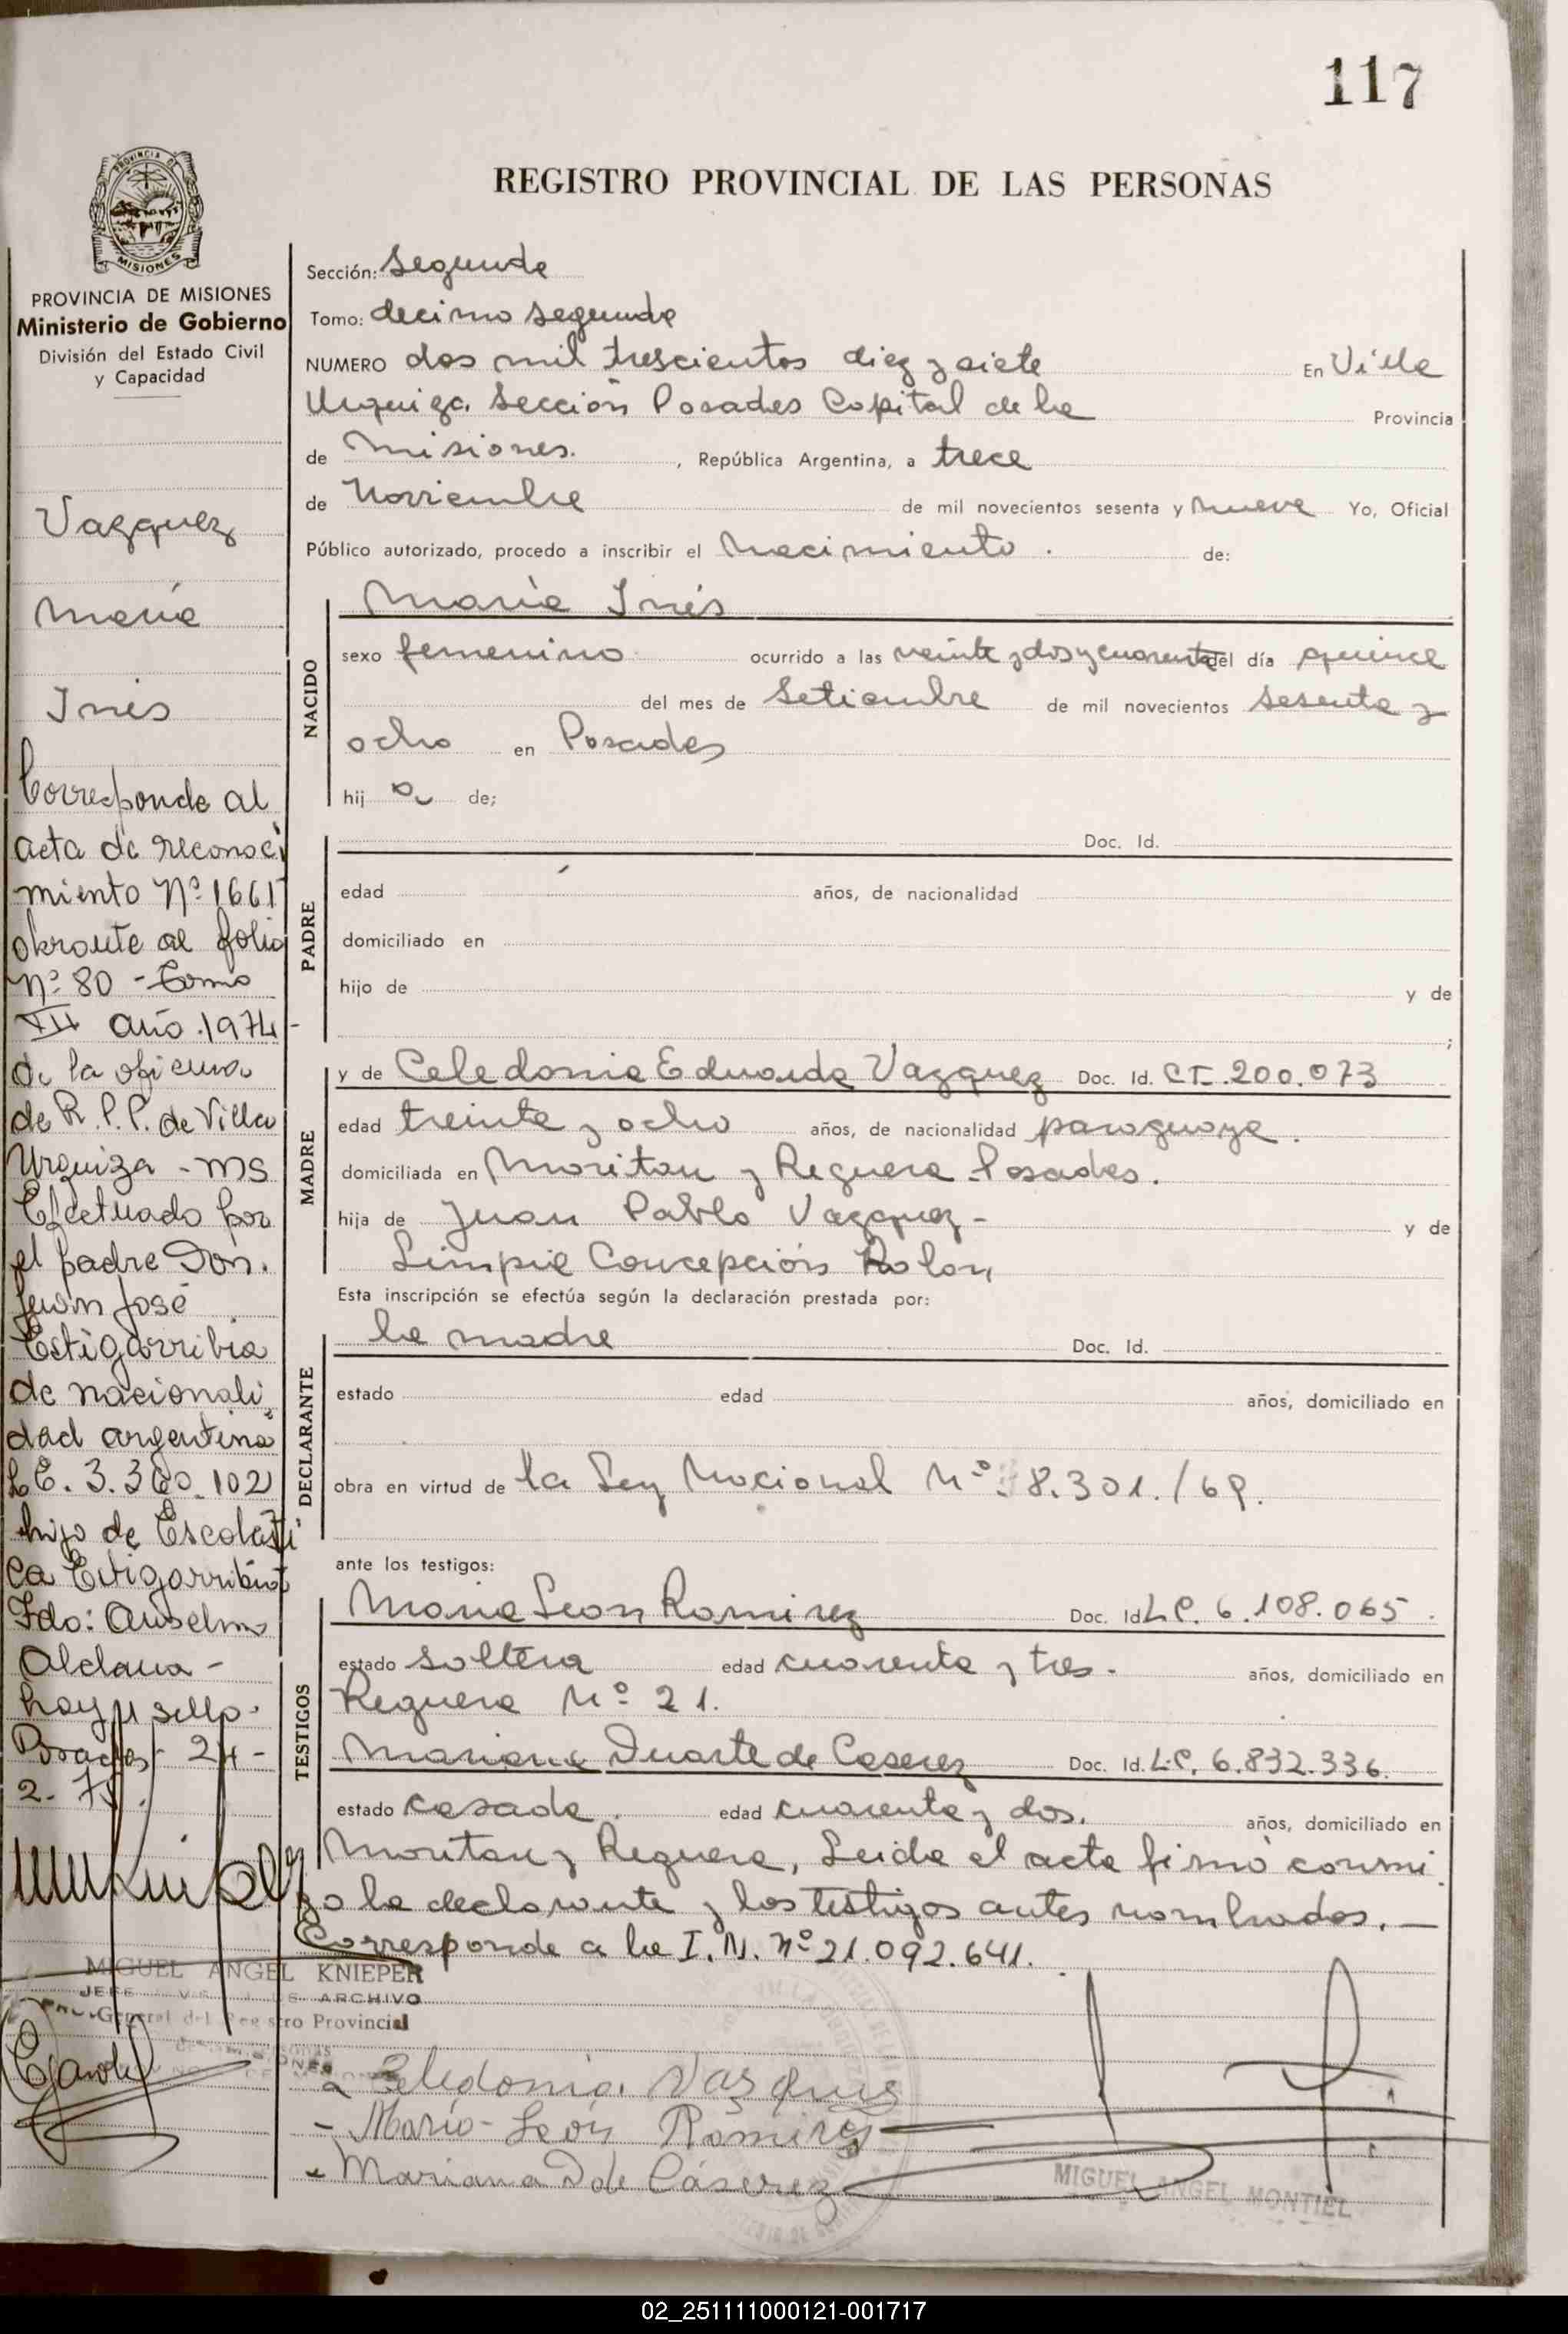 117
REGISTRO PROVINCIAL DE LAS PERSONAS
PROVINCIA DE MISIONES
Ministerio de Gobierno
División del Estado Civil
y Capacidad
Vazquez
María
Inés
Corresponde al
acta de reconoci
miento Nº 1661
obrante al folio
Nº 80 - Tomo
XII año 1974 -
de la oficina
de R.P.P. de Villa
Urquiza - MS
Efectuado por
el padre Don.
Juan José
Estigarribia
de nacionali
dad argentina
L.E. 3.360.102
hijo de Escolásti
ca Estigarribia
Fdo: Anselmo
Aldana -
hay 1 sello.
Posadas - 24 -
2. 75.
MIGUEL ANGEL KNIEPER
ARCHIVO
General del Registro Provincial
Sección: Segunda
Tomo: decimo segundo
NUMERO dos mil trescientos diez y siete En Villa
Urquiza Sección Posadas Capital de la Provincia
de Misiones. , República Argentina, a trece
de Noviembre de mil novecientos sesenta y nueve Yo, Oficial
Público autorizado, procedo a inscribir el Nacimiento . de:
NACIDO
María Inés
sexo femenino ocurrido a las veinte y dos y cuarenta del día quince
del mes de Setiembre de mil novecientos sesenta y
ocho en Posadas
hij a de;
PADRE
Doc. Id.
edad años, de nacionalidad
domiciliado en
hijo de y de
;
MADRE
y de Celedonia Eduarda Vazquez Doc. Id. CI. 200.073
edad treinta y ocho años, de nacionalidad paraguaya.
domiciliada en Moritan y Reguera - Posadas.
hija de Juan Pablo Vazquez - y de
Limpia Concepción Rolon
Esta inscripción se efectúa según la declaración prestada por:
DECLARANTE
la madre Doc. Id.
estado edad años, domiciliado en
obra en virtud de la Ley Nacional Nº 18.301./69.
ante los testigos:
TESTIGOS
Maria Leon Ramirez Doc. Id L.C. 6.108.065.
estado soltera edad cuarenta y tres. años, domiciliado en
Reguera Nº 21.
Mariana Duarte de Caserez Doc. Id. L.C. 6.832.336.
estado casada. edad cuarenta y dos. años, domiciliado en
Moritan y Reguera, Leida el acta firmó conmi
go la declarante y los testigos antes nombrados. —
Corresponde a la I.N. Nº 21.092.641.
Celedonia Vasques
- María León Ramirez
- Mariana D de Cáserez
MIGUEL ANGEL MONTIEL
02_251111000121-001717